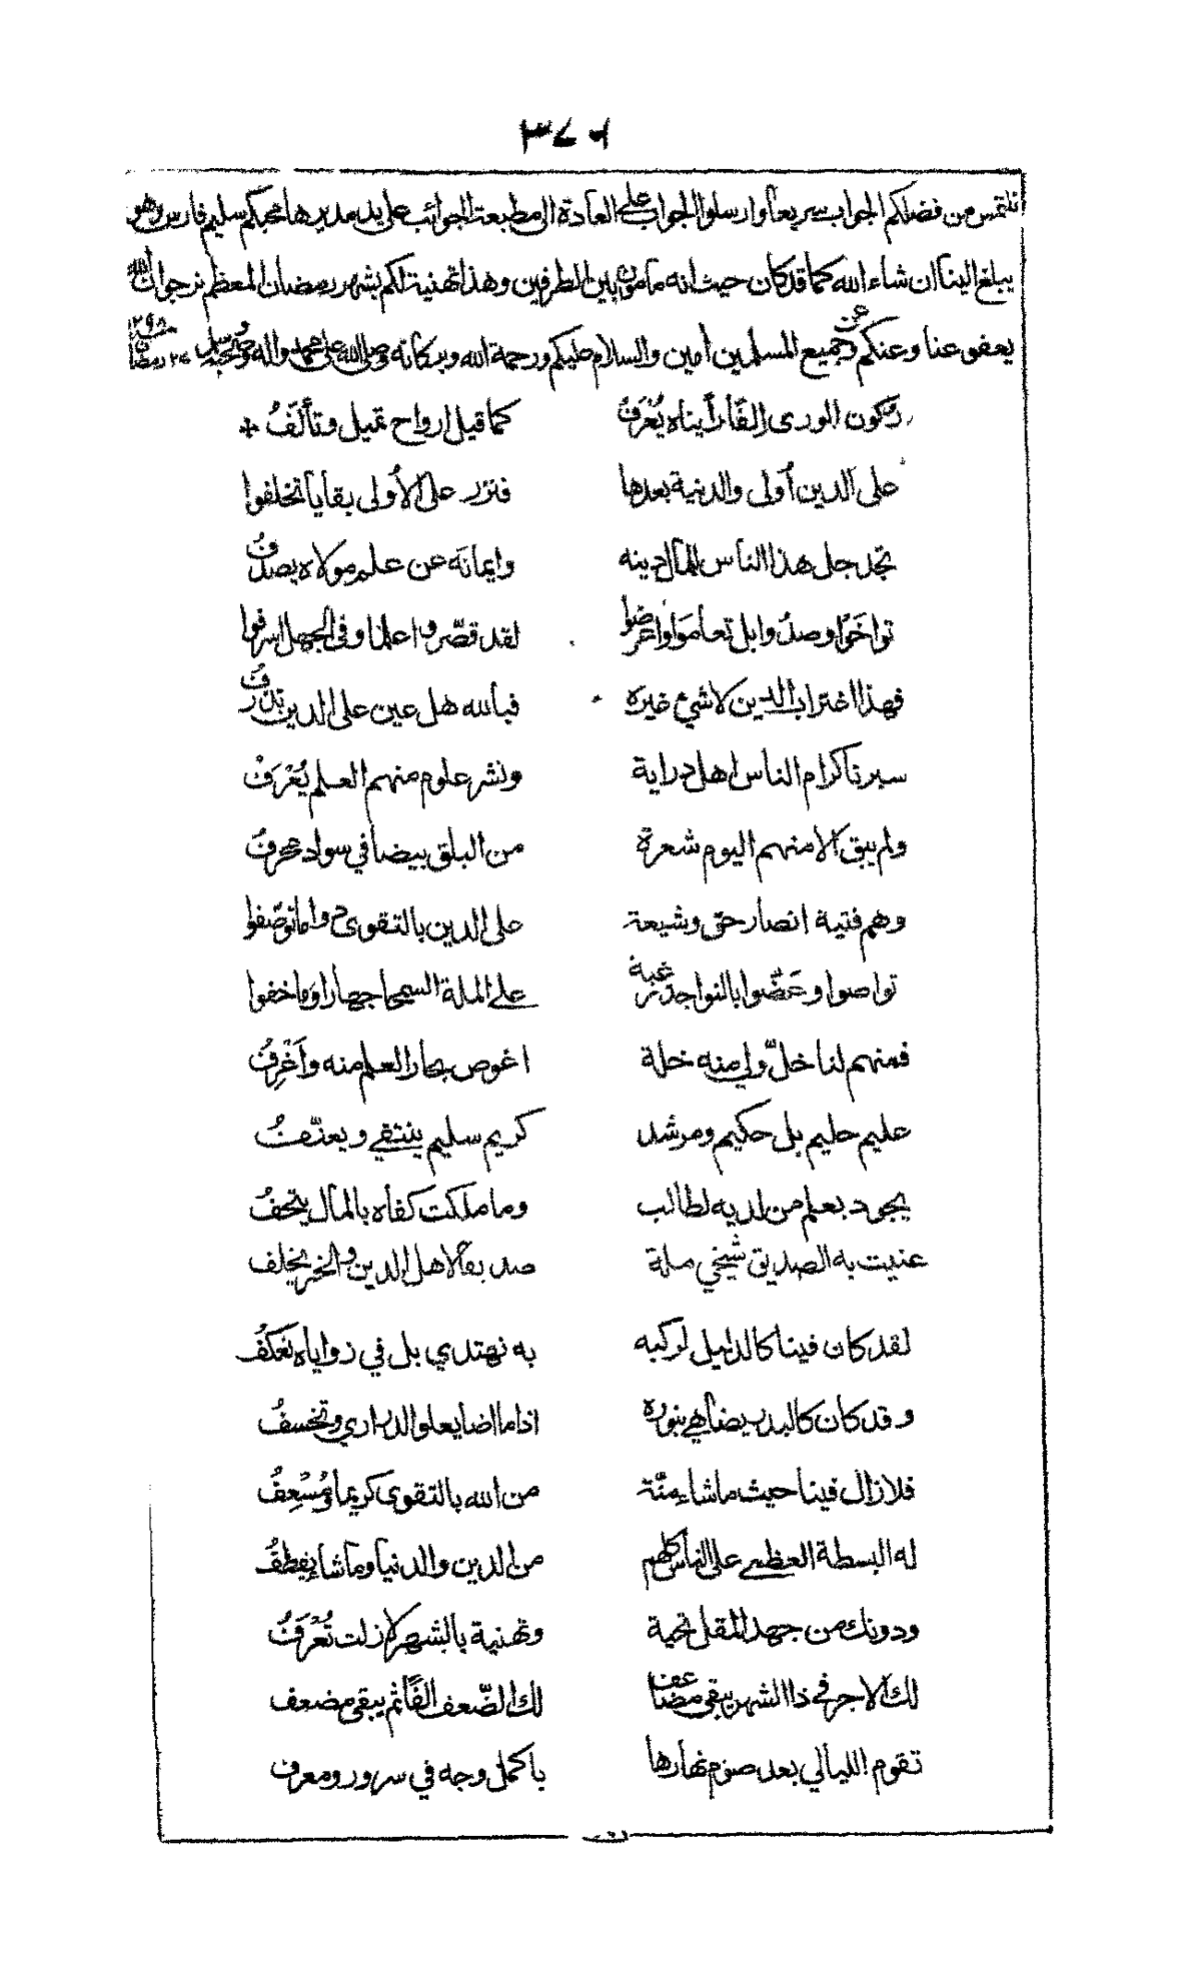 ٣٧٩
نلتمس من فضلكم الجواب سريعا وارسلوا الجواب على العادة الى مطبعة الجوائب على يد مديرها محبكم سليم فارس وهو
يبلغ الينا ان شاء الله كما قد كان حيث انه مامون بين الطرفين وهذا تهنية لكم بشهر رمضان المعظم نرجو ان الله
يعفو عنا وعنكم وعن جميع المسلمين امين والسلام عليكم ورحمة الله وبركاته وصلى الله على محمد واله وصحبه وسلم
ركون الورى إلفًا رأيناه يُعْرَفُ كما قيل ارواح تميل وتألَفُ
على الدين أولى والدنية بعدها فنزر على الأولى بقايا تخلفوا
تجد جل هذا الناس للمال دينه وايمانه عن علم مولاه يصدفُ
تواخَوْا وصدُوا بل تعامَوا واعرضوا لقد قصّروا علما وفي الجهل اسرفوا
فهذا اغتراب الدين لا شيئ غيره فبالله هل عين على الدين تذرفُ
سبرنا كرام الناس اهل دراية ونشر علوم منهم العلم يُعْرَفُ
ولم يبق الا منهم اليوم شعرة من البلق بيضا في سواد تحرفُ
وهم فتية انصار حق وشيعة على الدين بالتقوى وما توصّفوا
تواصوا وعَضّوا بالنواجذ رغبة على الملة السمحا جهارا وما خفوا
فمنهم لنا خلّ ولي منه خلة اغوص بحار العلم منه وأغْرِفُ
عليم حليم بل حكيم ومرشد كريم سليم ينتقي ويعنّفُ
يجود بعلم من لديه لطالب وما ملكت كفاه بالمال يتحفُ
عنيت به الصديق شيخي ملة صديقا لاهل الدين والخير يخلف
لقد كان فينا كالدليل لركبه به نهتدي بل في زواياه نعكفُ
وقد كان كالبدر يضاهي بنوره اذا ما اضا يعلو الدراري وتخسفُ
فلا زال فينا حيث ما شاء مِنّة من الله بالتقوى كريما ومُسْعِفُ
له البسطة العظمى على الناس كلهم من الدين والدنيا وما شاء يقطفُ
ودونك من جهد المقل تحية وتهنية بالشهر لا زلت تُعْرَفُ
لك الاجر في ذا الشهر يبقى مضاعف لك الضّعف الفًا ثم يبقى مضعف
تقوم الليالي بعد صوم نهارها باكمل وجه في سرور ومعرف